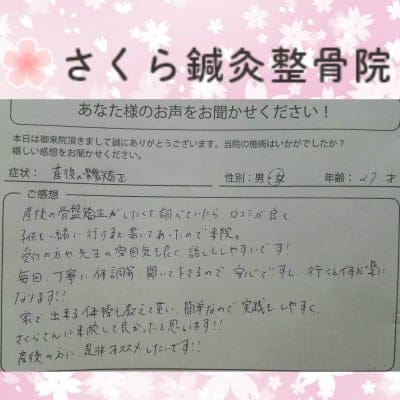 さくら鍼灸整骨院
あなた様のお声をお聞かせください！
本日は御来院頂きまして誠にありがとうございます。当院の施術はいかがでしたか？
嬉しい感想をお聞かせください。
症状： 産後の骨盤矯正 性別：男・女 年齢：27 才
ご感想
産後の骨盤矯正がしたくて、調べていたら、口コミが良く
子供も一緒に行けると書いてあったので来院。
受付の方や先生の雰囲気も良く、話ししやすいです！
毎回、丁寧に体調等、聞いて下さるので安心ですし、行くと体が楽に
なります!!
家で出来る体操も教えて貰い、簡単なので実践もしやすく、
さくらさんに来院して良かったと思います!!
産後の方に、是非オススメしたいです!!